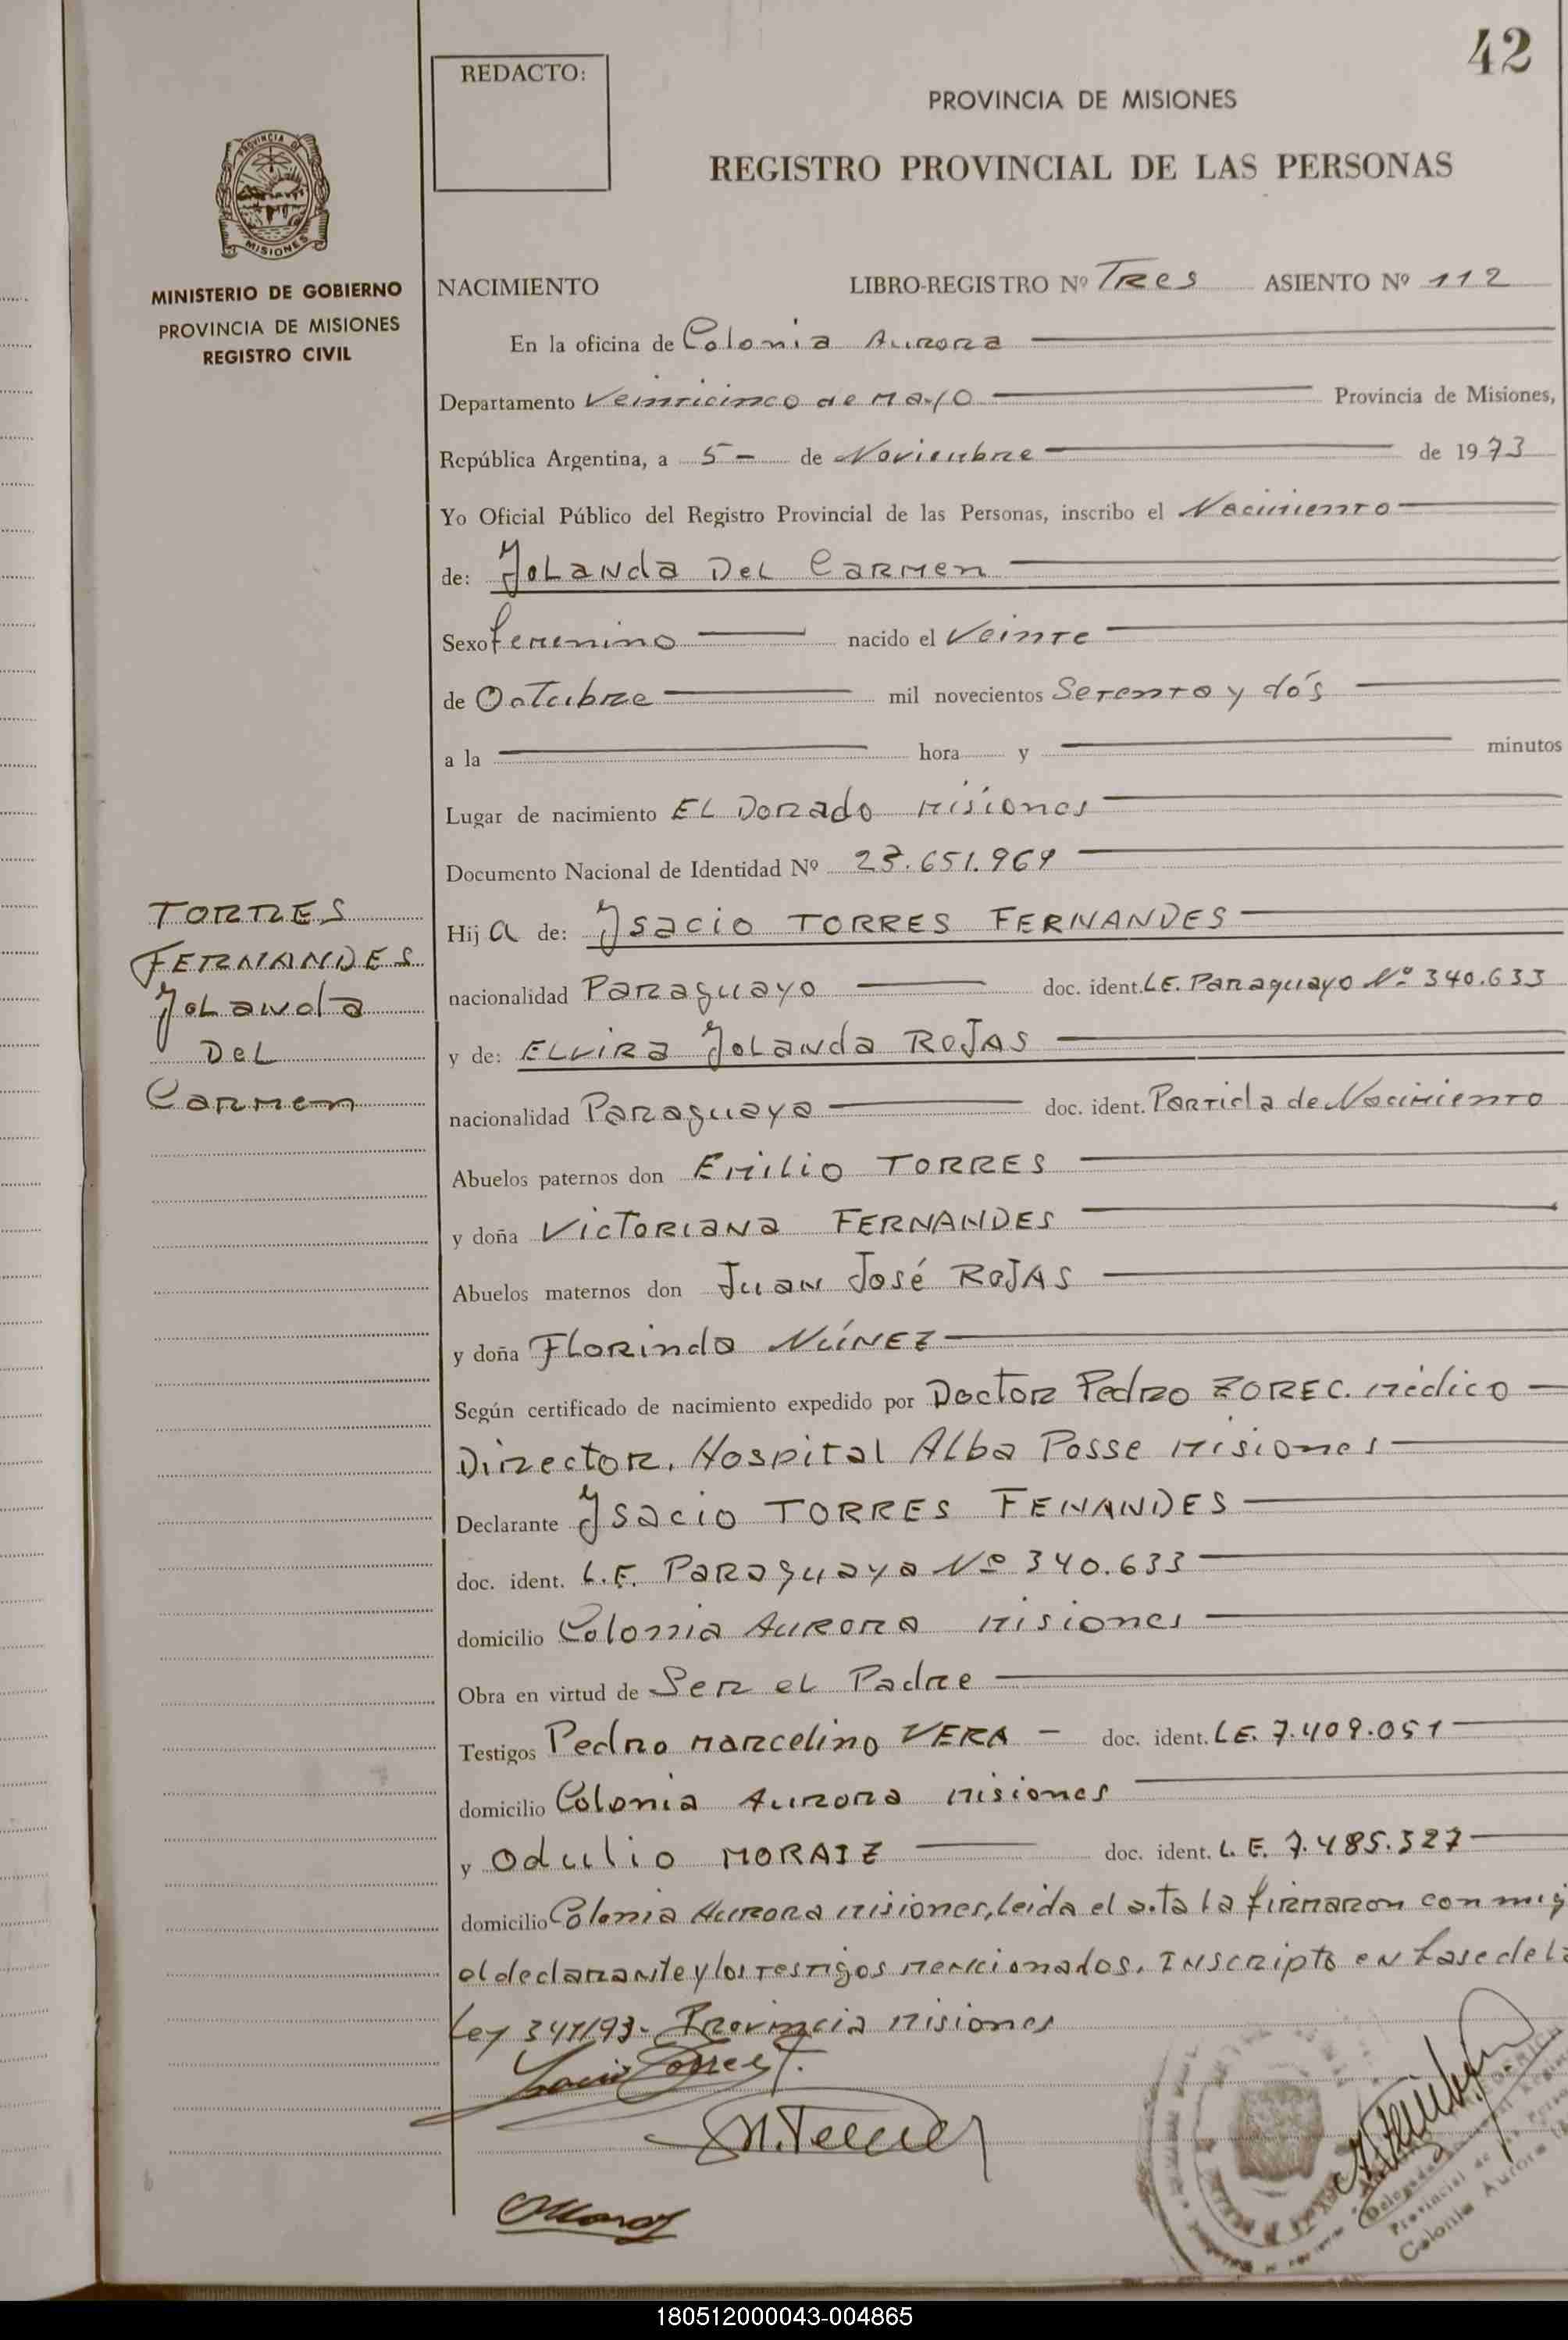 42
REDACTO:
PROVINCIA DE MISIONES
REGISTRO PROVINCIAL DE LAS PERSONAS
PROVINCIA DE
MISIONES
MINISTERIO DE GOBIERNO
PROVINCIA DE MISIONES
REGISTRO CIVIL
NACIMIENTO LIBRO-REGISTRO Nº Tres ASIENTO Nº 112
En la oficina de Colonia Aurora
Departamento Veinticinco de Mayo Provincia de Misiones,
República Argentina, a 5- de Noviembre de 1973
Yo Oficial Público del Registro Provincial de las Personas, inscribo el Nacimiento
de: Yolanda Del Carmen
Sexo femenino nacido el Veinte
de Octubre mil novecientos Setenta y dós
a la hora y minutos
Lugar de nacimiento El Dorado Misiones
Documento Nacional de Identidad Nº 23.651.969
TORRES
FERNANDES
Yolanda
Del
Carmen
Hija de: Ysacio TORRES FERNANDES
nacionalidad Paraguayo doc. ident. L.E. Paraguayo Nº 340.633
y de: Elvira Yolanda ROJAS
nacionalidad Paraguaya doc. ident. Partida de Nacimiento
Abuelos paternos don Emilio TORRES
y doña Victoriana FERNANDES
Abuelos maternos don Juan José ROJAS
y doña Florinda NÚNEZ
Según certificado de nacimiento expedido por Doctor Pedro ZOREC. Médico
Director. Hospital Alba Posse Misiones
Declarante Ysacio TORRES FENANDES
doc. ident. L.E. Paraguaya Nº 340.633
domicilio Colonia Aurora Misiones
Obra en virtud de Ser el Padre
Testigos Pedro Marcelino VERA - doc. ident. L.E. 7.409.051
domicilio Colonia Aurora Misiones
y Odulio MORAIZ doc. ident. L.E. 7.485.327
domicilio Colonia Aurora Misiones, leida el acta la firmaron con migo
el declarante y los testigos mencionados. Inscripto en base de la
Ley 341/93- Provincia Misiones
Colonia Aurora
180512000043-004865